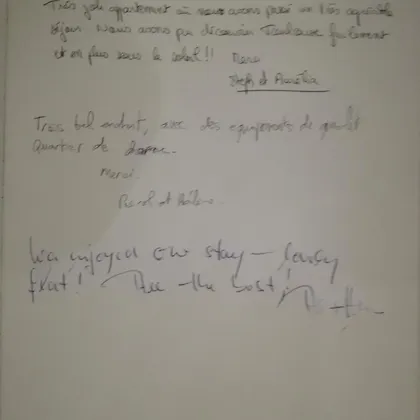 Très joli appartement où nous avons passé un très agréable
séjour. Nous avons pu découvrir facilement
et en plus sous le soleil!! Merci
Steph et Aurélia
Très bel endroit, avec des équipements de
quartier de
Merci.
et Hélène
We enjoyed our stay – lovely
flat! the best!